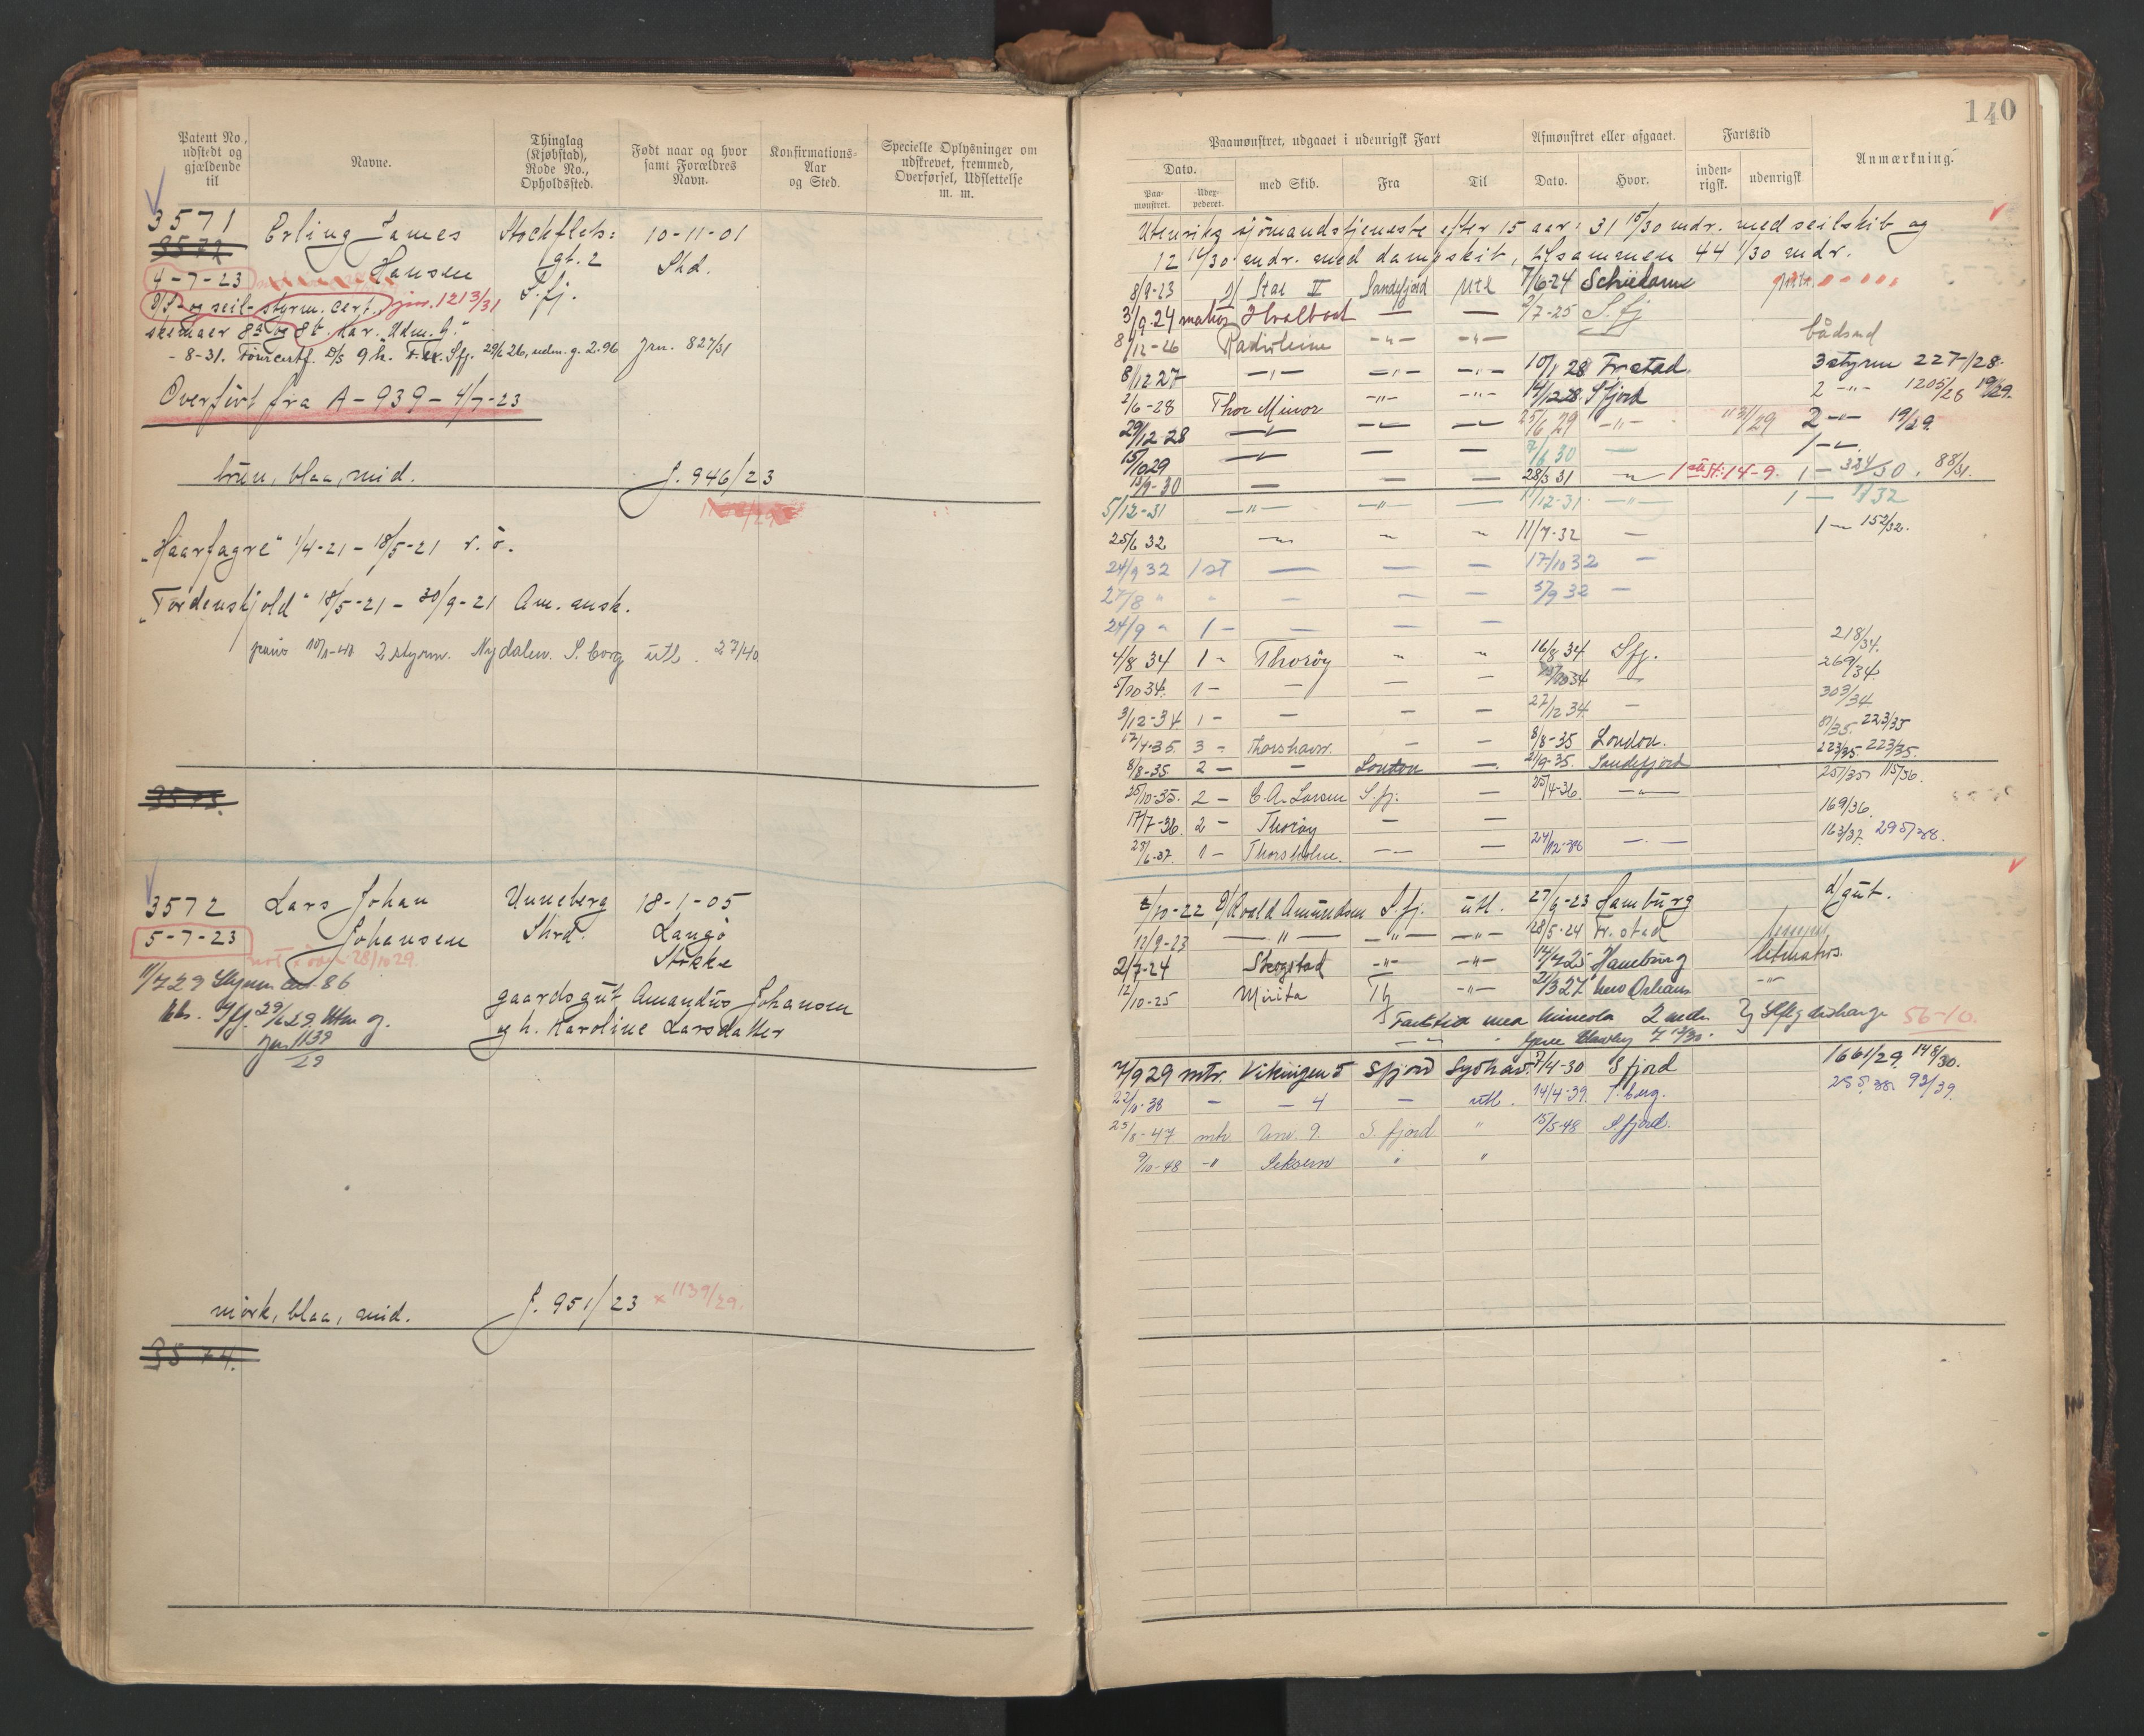 Patent No., udstedt og gjældende til
Navne.
Thinglag (Kjøbstad), Rode No., Opholdssted.
Født naar og hvor samt Forældres Navn.
Konfirmations-Aar og Sted.
Specielle Oplysninger om udskrevet, fremmed, Overførsel, Udslettelse m. m.
3571 Erling James Stockflets: 10-11-01
3572 Hansen gt. 2 Shd.
4-7-23 S.fj.
D/S- og seil- styrm. cert. jnr. 1213/31
skemaer 8a og 8b. Kar. Udm. g.
-8-31. D/S 9 h. Sfj. 29/6 26, udm. g. 2.96 Jnr. 827/31
Overført fra A-939-4/7-23
brun, blaa, mid. J. 946/23
"Haarfagre" 1/4-21 - 18/5-21 r. ö.
"Tordenskjold" 18/5-21 - 30/9-21 Am. ansk.
2 styrm. Nydalen. S. borg utl. 27/40
3573.
3572 Lars Johan Unneberg 18-1-05
5-7-23 Johansen Shrd. Langö
28/10 29. Stokke
11/7 29 Styrm cert. 86
Sfj. 29/6 29. Utm g. gaardsgut Amandus Johansen
Jnr 1139/29 og h. Karoline Larsdatter
mörk, blaa, mid. J. 951/23 x 1139/29.
3574.
140
Paamønstret, udgaaet i udenrigsk Fart
Afmønstret eller afgaaet.
Fartstid
Anmærkning.
Dato.
Paa-mønstret.
Udex-pederet.
med Skib.
Fra
Til
Dato.
Hvor.
inden-rigsk.
udenrigsk
Utenriks sjömandstjeneste efter 15 aar: 31 15/30 mdr. med seilskib og
12 16/30 mdr. med dampskib, tilsammen 44 1/30 mdr.
8/9-23 D/ Star II Sandefjord Utl 7/6-24 Schiedam
3/9-24 matros Hvalbod — — 2/7-25 S.fj
8/12-26 Radioleine -"- -"- bådsmd
8/12 27 -"- -"- -"- 10/1 28 Fr.stad. 3 styrm 227/28.
2/6-28 Thor Minor -"- -"- 14/12 28 Sfjord 2 -"- 1205/28 19/29.
29/12 28 — — — 25/6 29 -"- 1131/29 2 -"- 19/29.
15/10 29 — — — 7/6 30 — 1 -
13/9-30 — — — 28/3 31 1ste st: 14-9. 1 — 324/30. 88/31.
5/12-31 -"- -"- — 11/12-31 -"- 1 —
25/6 32 11/7-32 — 1 — 152/32.
24/9 32 1 st — — — 17/10 32 —
27/8 " " — — — 5/9 32 —
24/9 " 1 - — — —
4/8 34 1 " Thoröy " " 16/8 34 Sfj. 218/34.
5/10 34. 1 - — — — 34 — 269/34.
3/12-34 1 - — — — 27/12 34 — 303/34
17/4-35 3 - Thorshavn. — — 8/8-35 London. 81/35. 223/35
8/8-35 2 - — London — 2/9-35. Sandefjord 223/35. 223/35.
25/10-35. 2 - C. A. Larsen S.fj. — 25/4-36. -"- 257/35 115/36.
17/7-36 2 - Thoröy — — 169/36
23/6-37. 1 - Thorsholm. — — — 163/37. 295/38.
6/10-22 D/ Roald Amundsen S.fj. utl. 27/6-23 Hamburg d/gut.
12/9-23 -"- -"- -"- 28/5-24 Fr.stad
2/7-24 Skogstad -"- -"- 14/7 25 Hamburg letmatros.
12/10-25 Mirita 2/3 27 New Orleans -"-
Fartstid med Mineola 2 mdr 56-10.
7 13/30.
7/9 29 mtr. Vikingen 5 Sfjord Sydhav. 7/4-30 Sfjord 1661/29. 148/30.
22/9-38 — — 4 — utl. 14/4-39. T.berg. 255/38. 93/39.
25/8-47 mtr Unv. 9. S. fjord " 15/5-48 S.fjord.
9/10-48 -" Seksern " "